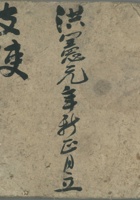 洪憲元年新正月立
支